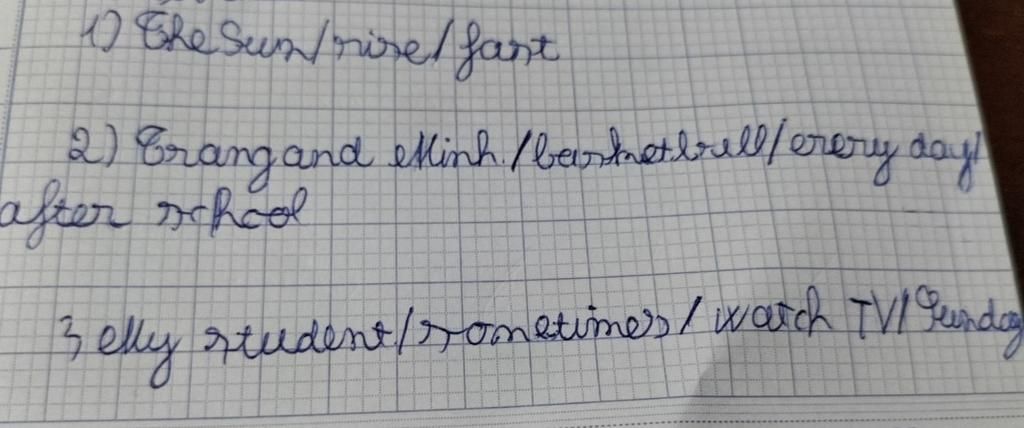 1) The Sun/rise/fast
2) Trang and Minh/basketball/every day/
after school
3 My student/sometimes/watch TV/Sunday